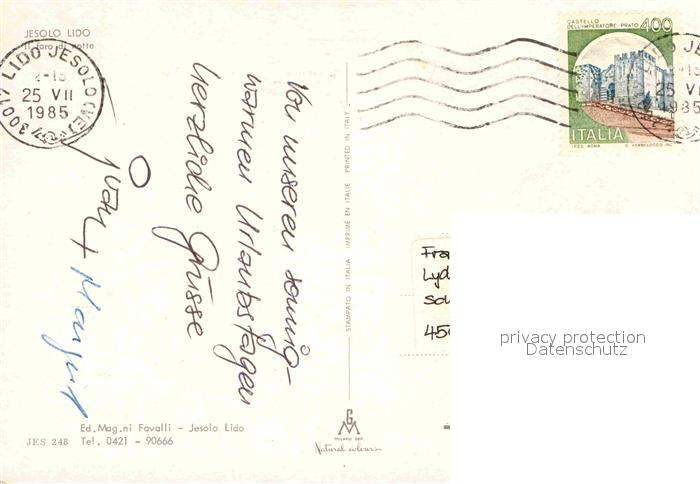 JESOLO LIDO
Il faro di notte
30017 LIDO JESOLO (VE)
25 VII
1985
CASTELLO
DELL'IMPERATORE - PRATO
400
ITALIA
I.P.Z.S. ROMA
25 VII
1985
Von unseren sonnig-
warmen Urlaubstagen
herzliche Grüsse
Margit
STAMPATO IN ITALIA IMPRIMÉ EN ITALIE PRINTED IN ITALY
Lyd
450
privacy protection
Datenschutz
Ed. Mag.ni Favalli - Jesolo Lido
JES 248 Tel. 0421 - 90666
GM
Natural colours